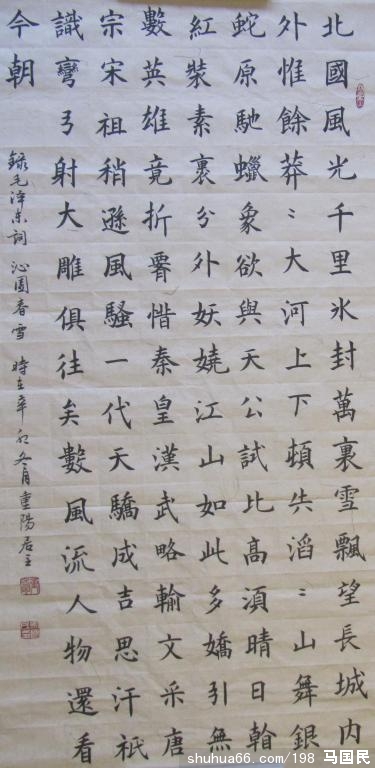 北國風光千里氷封萬裏雪飄望長城内
外惟餘莽〻大河上下頓失滔〻山舞銀
蛇原馳蠟象欲與天公試比高須晴日翰
紅裝素裏分外妖嬈江山如此多嬌引無
數英雄竟折腎惜秦皇漢武略輸文采唐
宗宋祖稍遜風騷一代天驕成吉思汗祇
識彎弓射大雕俱往矣數風流人物還看
今朝
錄毛泽东詞 沁園春雪 時在辛卯冬月重陽居主
shuhua66.com/198 马国民